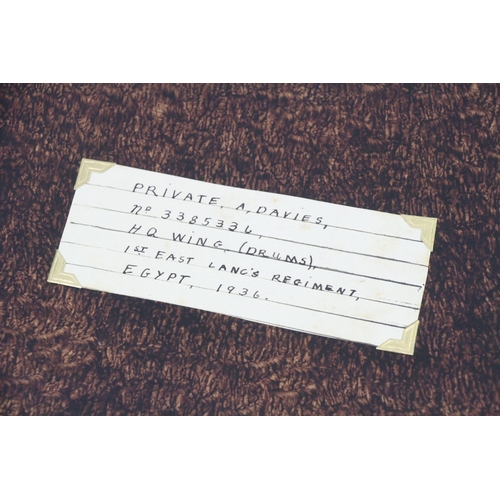 PRIVATE, A, DAVIES,
No 3385336,
HQ WING, (DRUMS),
1ST EAST LANC'S REGIMENT,
EGYPT, 1936.